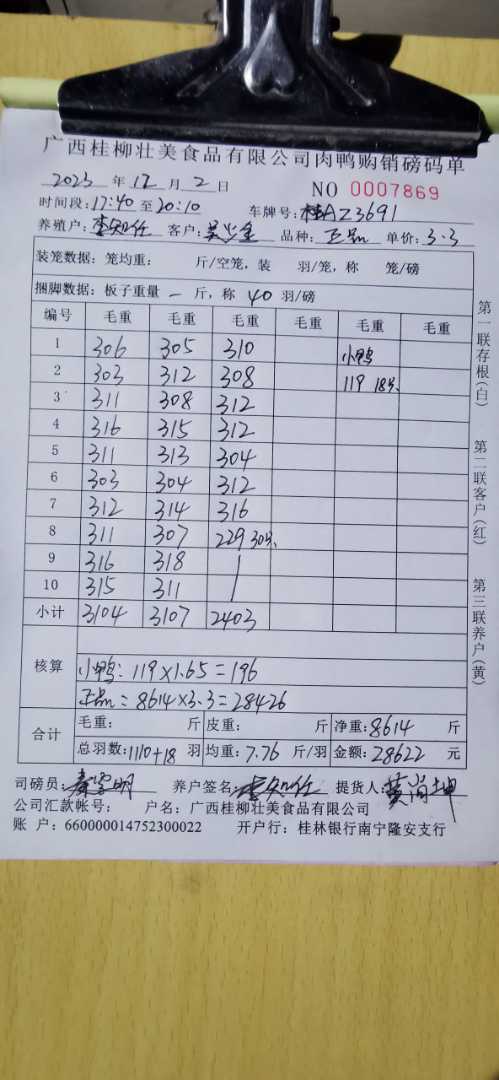 广西桂柳壮美食品有限公司肉鸭购销磅码单
2023 年 12 月 2 日 NO 0007869
时间段: 17:40 至 20:10 车牌号: 桂AZ3691
养殖户: 李知任 客户: 品种: 正品 单价: 3.3
装笼数据: 笼均重: 斤/空笼, 装 羽/笼, 称 笼/磅
捆脚数据: 板子重量 一 斤, 称 40 羽/磅
编号 毛重 毛重 毛重 毛重 毛重 毛重
1 306 305 310 小鸭
2 303 312 308 119 18只
3 311 308 312
4 316 315 312
5 311 313 304
6 303 304 312
7 312 314 316
8 311 307 229 30只
9 316 318
10 315 311
小计 3104 3107 2403
核算
小鸭: 119×1.65=196
正品: 8614×3.3=28426
合计
毛重: 斤 皮重: 斤 净重: 8614 斤
总羽数: 1110+18 羽 均重: 7.76 斤/羽 金额: 28622 元
司磅员: 养户签名: 李知任 提货人: 黄尚坤
公司汇款帐号: 户名: 广西桂柳壮美食品有限公司
账 户: 660000014752300022 开户行: 桂林银行南宁隆安支行
第一联存根(白)
第二联客户(红)
第三联养户(黄)